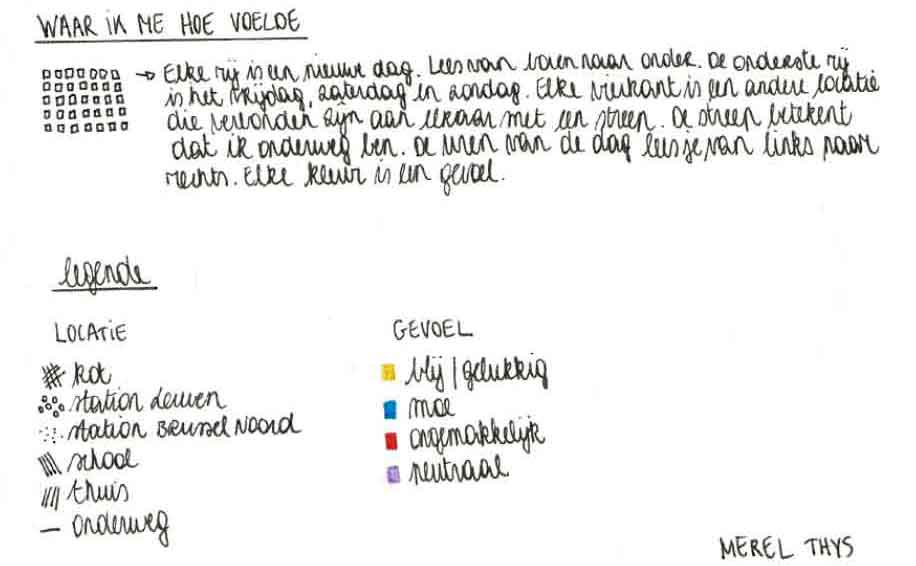 WAAR IK ME HOE VOELDE
Elke rij is een nieuwe dag. Lees van boven naar onder. De onderste rij
is het vrijdag, zaterdag en zondag. Elke vierkant is een andere locatie
die verbonden zijn aan elkaar met een streep. De streep betekent
dat ik onderweg ben. De uren van de dag lees je van links naar
rechts. Elke kleur is een gevoel.
legende
LOCATIE
kot
station Leuven
station BRUSSEL NOORD
school
thuis
onderweg
GEVOEL
blij / gelukkig
moe
ongemakkelijk
neutraal
MEREL THYS